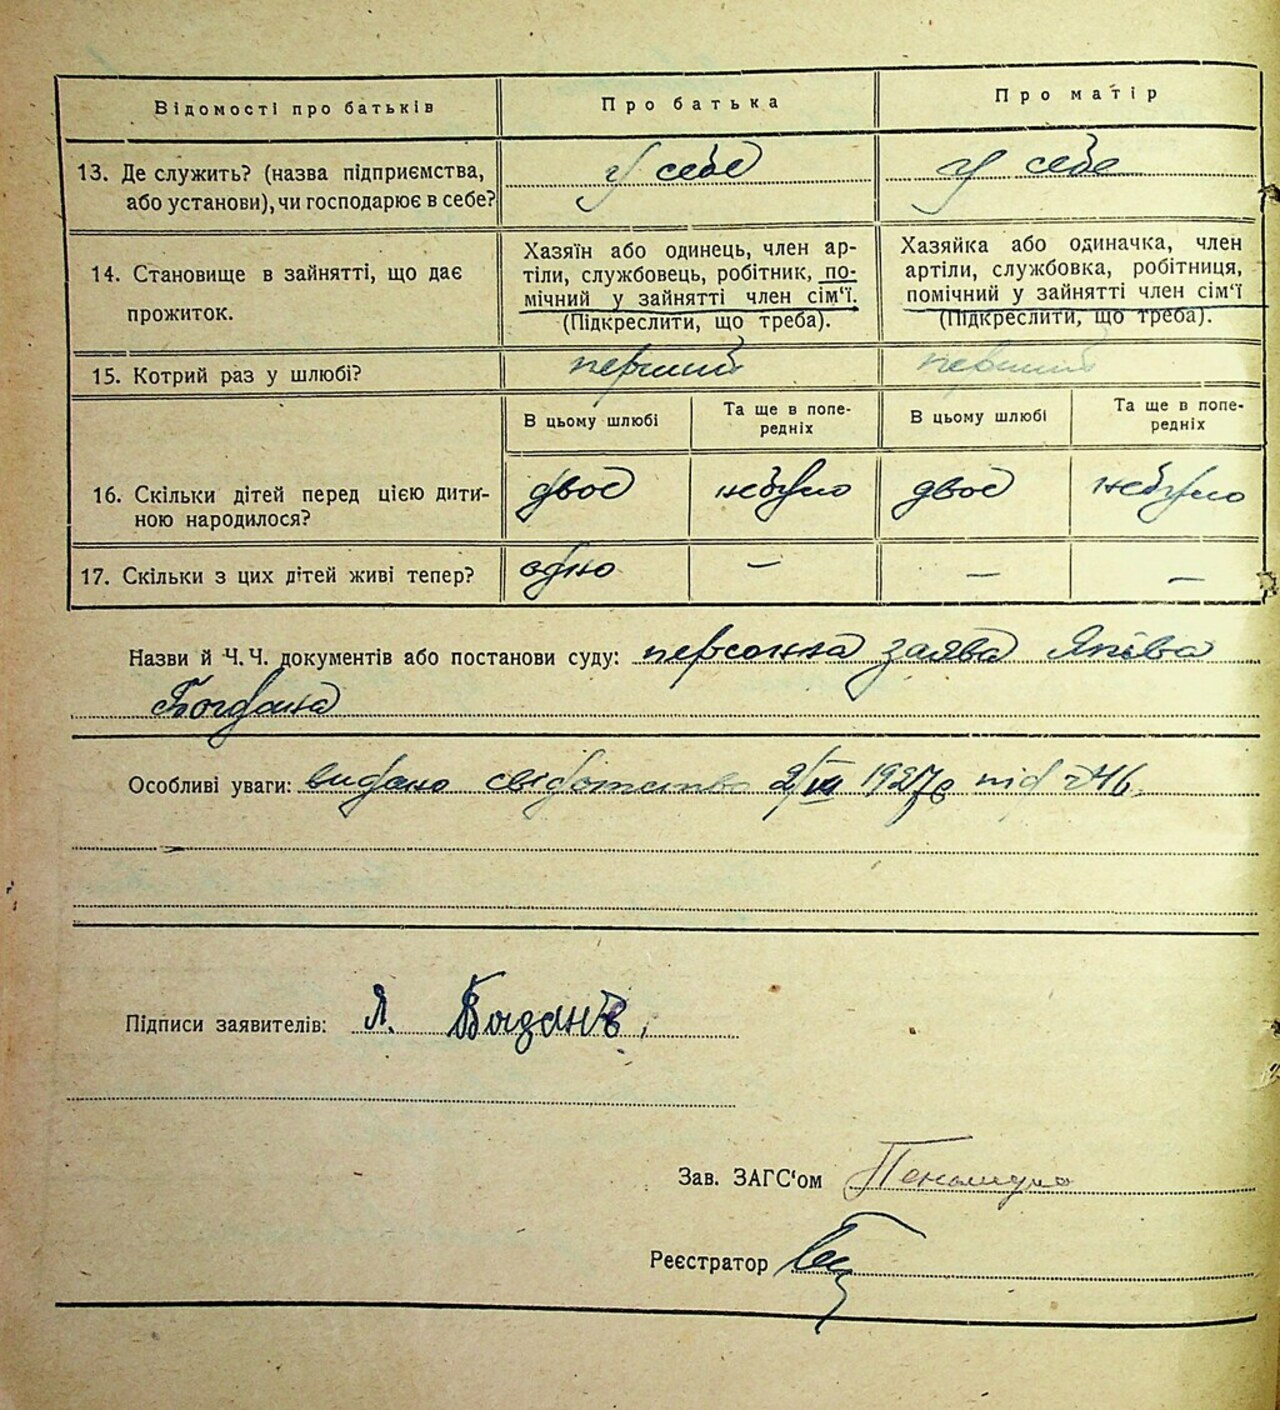 Відомості про батьків
Про батька
Про матір
13. Де служить? (назва підприємства,
або установи), чи господарює в себе?
у себе
у себе
14. Становище в зайнятті, що дає
прожиток.
Хазяїн або одинець, член ар-
тілі, службовець, робітник, по-
мічний у зайнятті член сім'ї.
(Підкреслити, що треба).
Хазяйка або одиначка, член
артілі, службовка, робітниця,
помічний у зайнятті член сім'ї
(Підкреслити, що треба).
15. Котрий раз у шлюбі?
перший
перший
В цьому шлюбі
Та ще в попе-
редніх
В цьому шлюбі
Та ще в попе-
редніх
16. Скільки дітей перед цією дити-
ною народилося?
двоє
небуло
двоє
небуло
17. Скільки з цих дітей живі тепер?
одно
—
—
—
Назви й Ч.Ч. документів або постанови суду: персонна заява
Богдана
Особливі уваги: видано свідотство 2/VII 1927 під
Підписи заявителів: Я.
Зав. ЗАГС'ом
Реєстратор